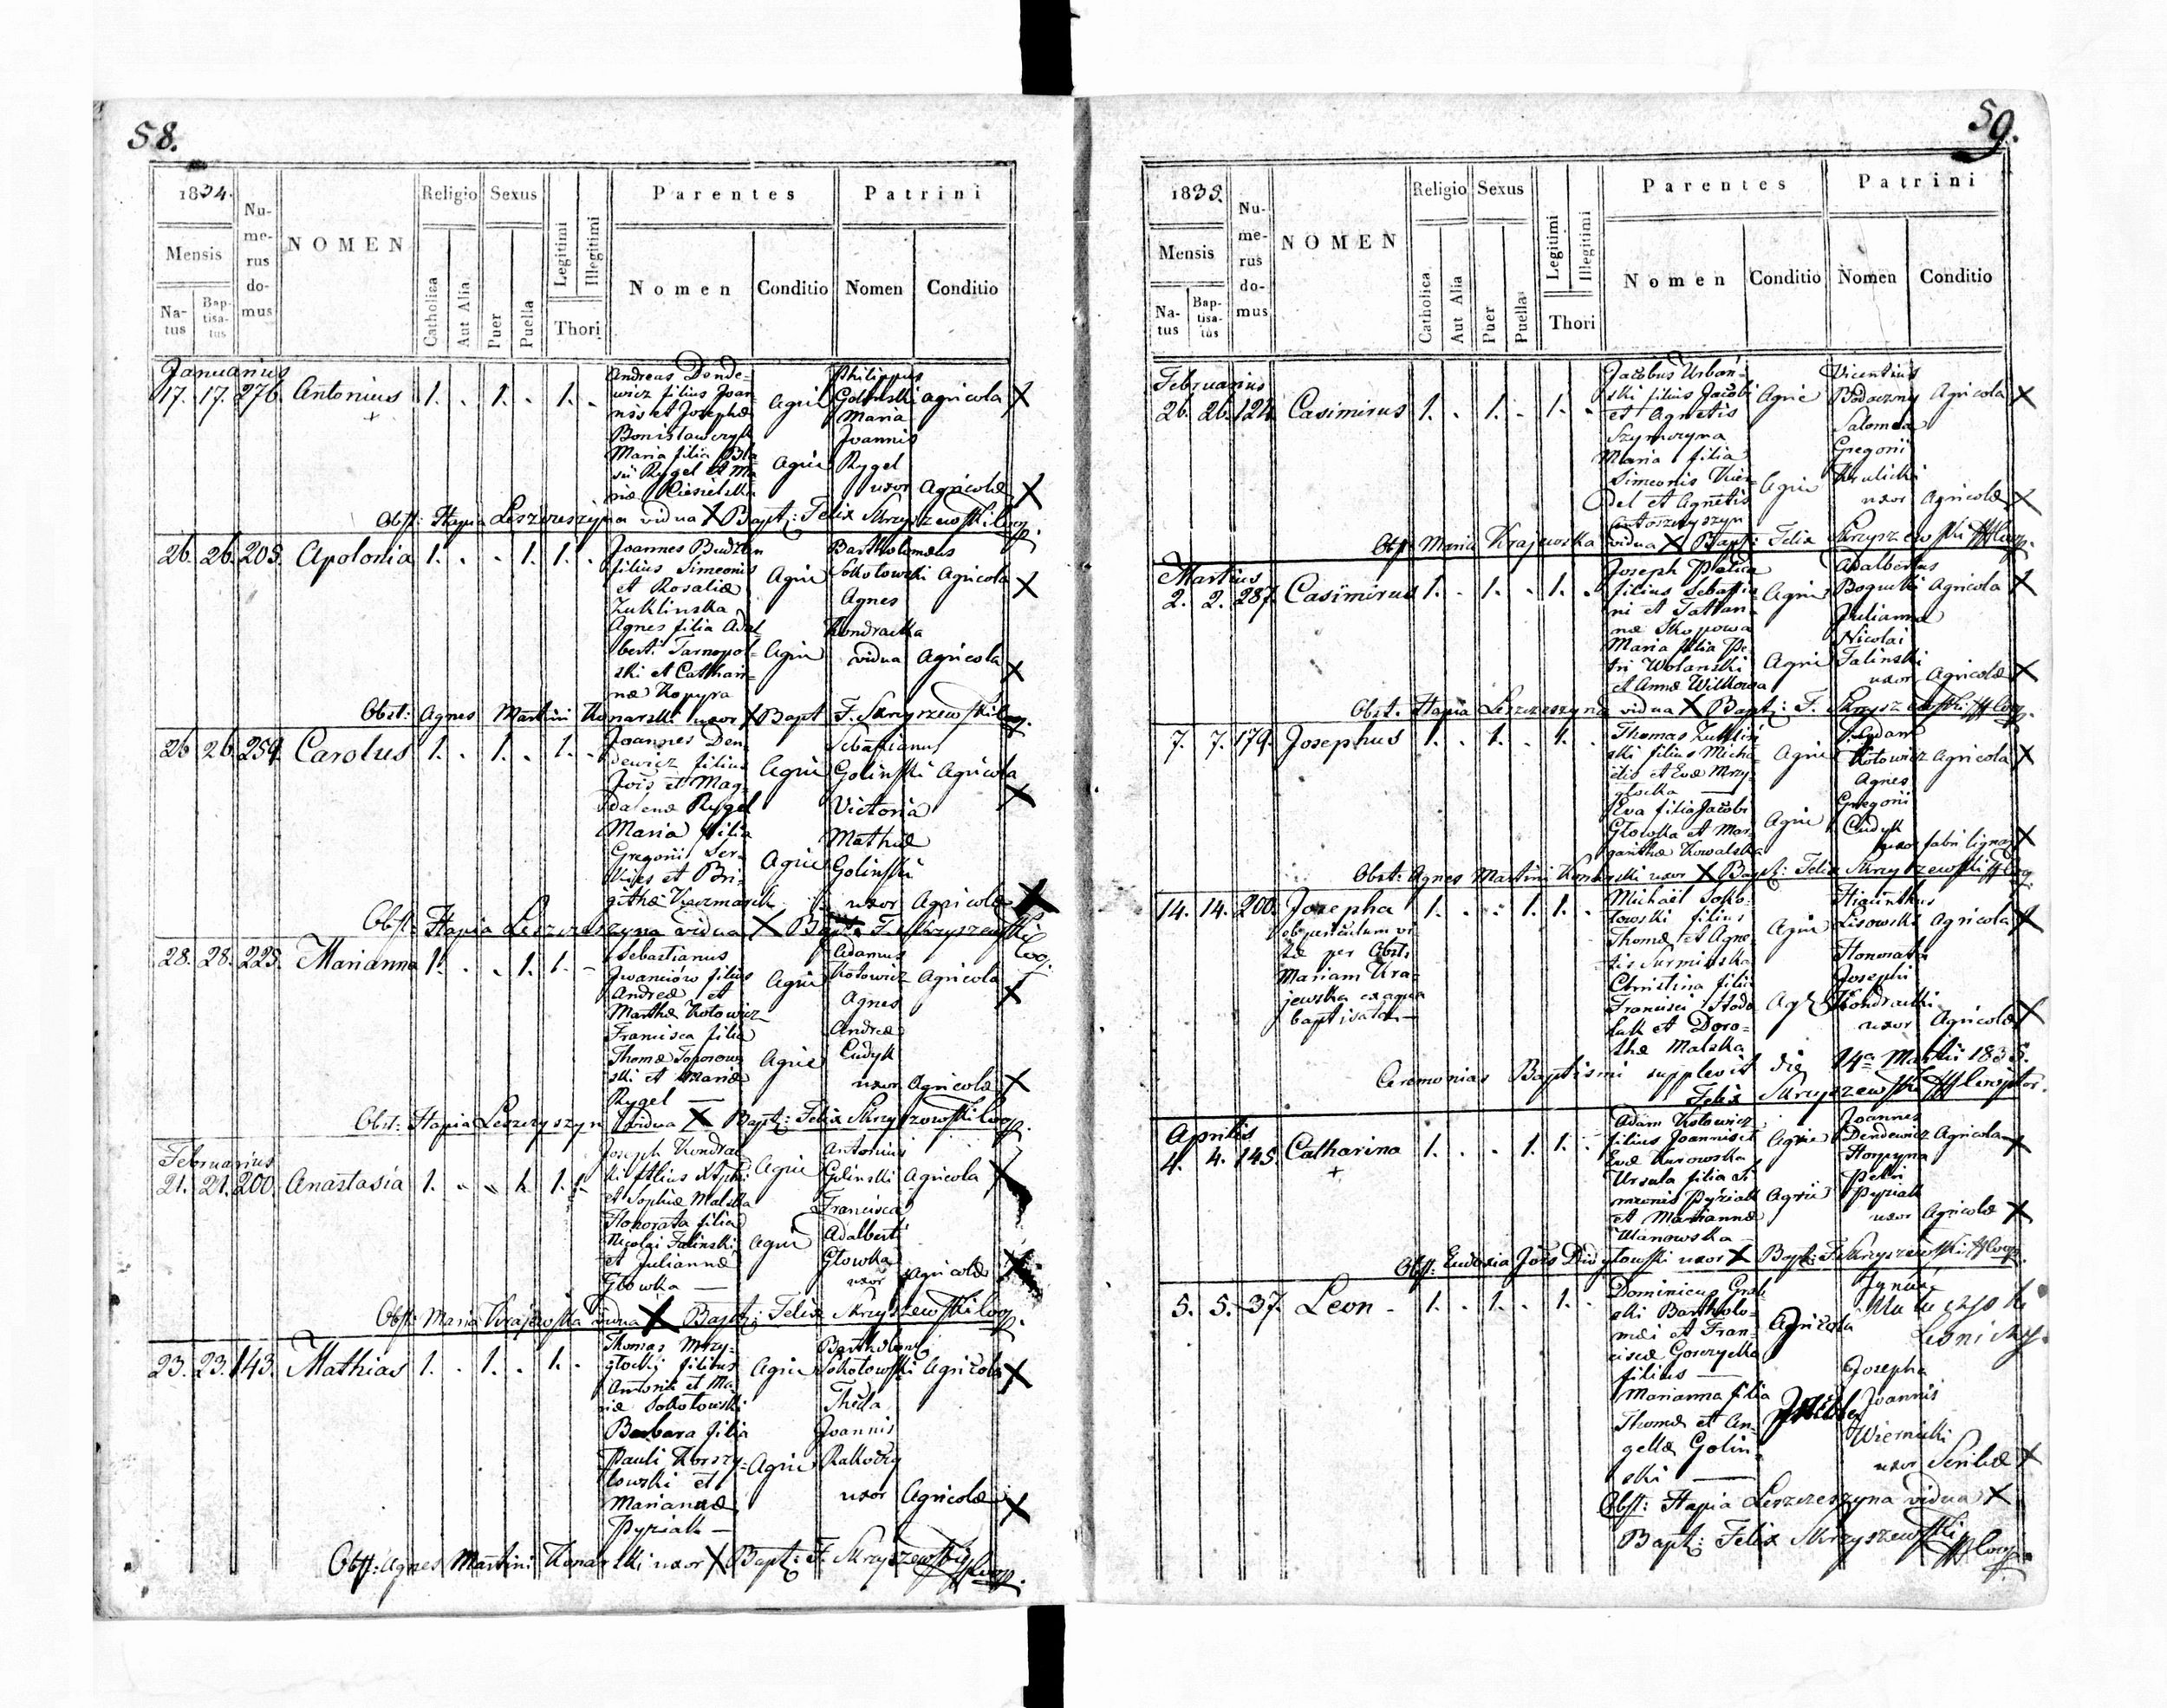 58.
1834.
Mensis
Na-
tus
Bap-
tisa-
tus
Nu-
me-
rus
do-
mus
NOMEN
Religio
Catholica
Aut Alia
Sexus
Puer
Puella
Legitimi
Illegitimi
Thori
Parentes
Nomen
Conditio
Patrini
Nomen
Conditio
Januarius
17. 17. 276. Antonius 1. . 1. . 1. .
Andreas Dende-
wicz filius Joan-
nis et Josephæ
Bonislawczyk
Agric
Maria filia Bla-
sii Rygel et Ma-
riæ Ciesielska
Agric
Philippus
Golinski agricola X
Maria
Joannis
Rygel
uxor Agricolæ X
Obst: Hapia Leszczeszyna vidua X Bapt: Felix Skrzyszewski Coop.
26. 26. 205. Apolonia 1. . . 1. 1. .
Joannes Budzen
filius Simeonis
et Rosaliæ
Zuklinska
Agric
Agnes filia Adal-
berti Tarnopol-
ski et Cathari-
næ Kopyra
Agric
Bartholomæus
Sokołowski Agricola X
Agnes
Kondracka
vidua Agricola X
Obst: Agnes Martini Konarski uxor X Bapt F. Skrzyszewski Coop.
26 26. 259. Carolus 1. . 1. . 1. .
Joannes Den-
dewicz filius
Jois et Mag-
dalenæ Rygel
Agric
Maria filia
Gregorii Ser-
kies et Bri-
githæ Kaczmarek
Agric
Sebastianus
Golinski Agricola X
Victoria
Mathiæ
Golinski
uxor Agricolæ X
Obst: Hapia Leszczeszyna vidua X Bapt: F. Skrzyszewski
Coop.
28. 28. 225. Marianna 1. . . 1. 1. -
Sebastianus
Iwanciów filius
Andreæ et
Marthæ Kotowicz
Agric
Francisca filia
Thomæ Toporow-
ski et Mariæ
Rygel —
Agric
Adamus
Kotowicz Agricola X
Agnes
Andreæ
Cudyk
uxor Agricolæ X
Obst: Hapia Leszczyszyn vidua X Bapt: Felix Skrzyszowski Coop.
Februarius
21. 21. 200. Anastasia 1. . . 1. 1. .
Joseph Kondrac-
ki filius
et Sophiæ Malska
Agric
Honorata filia
Nicolai Falinski
et Juliannæ
Głowka —
Agric
Antonius
Golinski Agricola X
Francisca
Adalberti
Głowka
uxor Agricolæ X
Obst: Maria Krajewska vidua X Bapt: Felix Skrzyszewski Coop.
23. 23. 143. Mathias 1. . 1. . 1. .
Thomas Mrzy-
głocki filius
Antonii et Ma-
riæ Sokołowski
Agric
Barbara filia
Pauli Korszy-
łowski et
Mariannæ
Pyziak —
Agric
Bartholom
Sokołowski Agricola X
Thecla
Joannis
Rakoczy
uxor Agricolæ X
Obst: Agnes Martini Konarski uxor X Bapt: F. Skrzyszewski Coop.
59.
1835.
Mensis
Na-
tus
Bap-
tisa-
tus
Nu-
me-
rus
do-
mus
NOMEN
Religio
Catholica
Aut Alia
Sexus
Puer
Puella
Legitimi
Illegitimi
Thori
Parentes
Nomen
Conditio
Patrini
Nomen
Conditio
Februarius
26. 26. 124. Casimirus 1. . 1. . 1. .
Jacobus Urbań-
ski filius Jacobi
et Agnetis
Szymczyna
Agric
Maria filia
Simeonis
et Agnetis
Antoszczyszyn
Agric
Vicentius
Agricola X
Salomea
Gregorii
Krulicki
uxor Agricolæ X
Obst: Maria Krajewska vidua X Bapt: Felix Skrzyszewski Coop.
Martius
2. 2. 287. Casimirus 1. . 1. . 1. .
Joseph Palica
filius Sebastia-
ni et Tattan-
næ Skopowa
Agric
Maria filia Pe-
tri Wolanski
et Annæ Wilkowa
Agric
Adalbertus
Bogucki Agricola X
Julianna
Nicolai
Falinski
uxor Agricolæ X
Obst. Hapia Leszczeszyna vidua X Bapt: F. Skrzyszewski Coop.
7. 7. 179. Josephus 1. . 1. . 1. .
Thomas Zuklin-
ski filius Micha-
elis et Evæ Mrzy-
głocka —
Agric
Eva filia Jacobi
Głowka et Mar-
garithæ Kowalska
Agric
Adam
Kotowicz Agricola X
Agnes
Gregorii
Cudyk
uxor fabri lignar X
Obst: Agnes Martini Konarski uxor X Bapt: Felix Skrzyszewski Coop.
14. 14. 200. Josepha 1. . . 1. 1. .
ob periculum vi-
tæ per Obst:
Mariam Kra-
jewska ex aqua
baptisata —
Michael Soko-
lowski filius
Thomæ et Agne-
tis Surminska
Agric
Christina filia
Francisci Hodo-
luk et Doro-
thæ Malska
Agr
Hiacinthus
Lisowski Agricola X
Honorata
Josephi
Kondracki
uxor Agricolæ X
Ceremonias Baptismi supplevit die 14a Martii 1835.
Felix Skrzyszewski Cooptor.
Aprilis
4. 4. 145. Catharina 1. . . 1. 1. .
Adam Kotowicz
filius Joannis et
Evæ Kurowska
Agric
Ursula filia Si-
meonis Pyziak
et Mariannæ
Ulanowska
Agric
Joannes
Dendewicz Agricola X
Horpyna
Petri
Pyziak
uxor Agricolæ X
Obst: Eudoxia Jois uxor X Bapt: F. Skrzyszewski Coop.
5. 5. 37. Leon - 1. . 1. . 1. .
Dominicus
Bartholo-
mæi et Fran-
ciscæ Goszczycka
filius —
Agricola
Marianna filia
Thomæ et An-
gellæ Golin-
ski —
Ignacy
Josepha
Joannis
Wiernicki
uxor Scribæ X
Obst: Hapia Leszczeszyna vidua X
Bapt: Felix Skrzyszewski Coop.